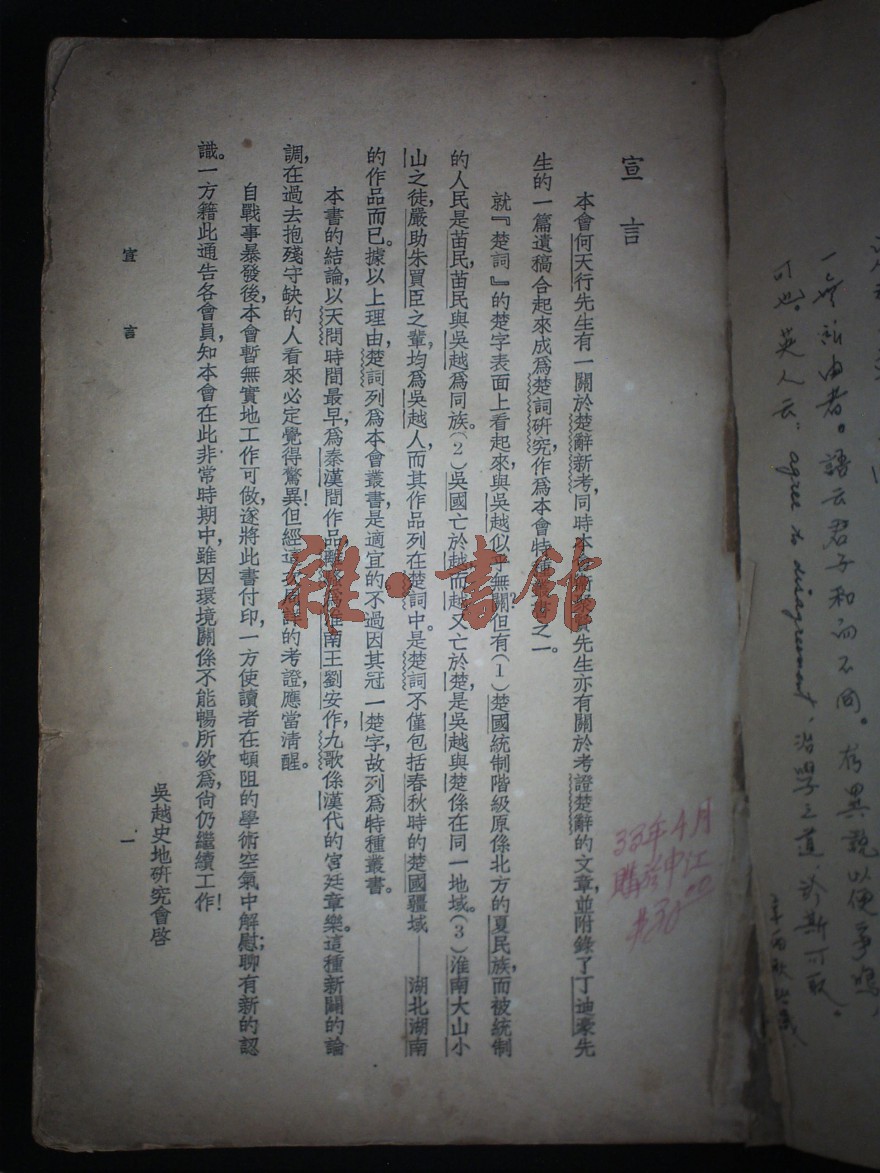 一無詆由者。語云君子和而不同。有異說以便爭鳴，
可也。英人云"agree to disagreement，治學之道於斯可取。
宣言
本會何天行先生有一關於楚辭新考，同時本會衛聚賢先生亦有關於考證楚辭的文章，並附錄了丁迪豪先
生的一篇遺稿合起來成爲楚詞硏究，作爲本會特種叢書之一。
就『楚詞』的楚字表面上看起來，與吳越似乎無關？但有（1）楚國統制階級原係北方的夏民族，而被統制
的人民是苗民，苗民與吳越爲同族。（2）吳國亡於越，而越又亡於楚，是吳越與楚係在同一地域。（3）淮南大山小
山之徒，嚴助朱買臣之輩，均爲吳越人，而其作品列在楚詞中。是楚詞不僅包括春秋時的楚國疆域——湖北湖南
的作品而已。據以上理由，楚詞列爲本會叢書是適宜的，不過因其冠一楚字，故列爲特種叢書。
本書的結論，以天問時間最早，爲秦漢間作品，離騷爲淮南王劉安作，九歌係漢代的宮廷章樂。這種新闢的論
調，在過去抱殘守缺的人看來必定覺得驚異！但經這次周詳的考證，應當淸醒。
自戰事暴發後，本會暫無實地工作可做，遂將此書付印，一方使讀者在頓阻的學術空氣中解慰，聊有新的認
識。一方籍此通告各會員，知本會在此非常時期中，雖因環境關係不能暢所欲爲，尙仍繼續工作！
吳越史地硏究會啓
宣言
一
33年4月
購於中江
$30.00
雜·書館